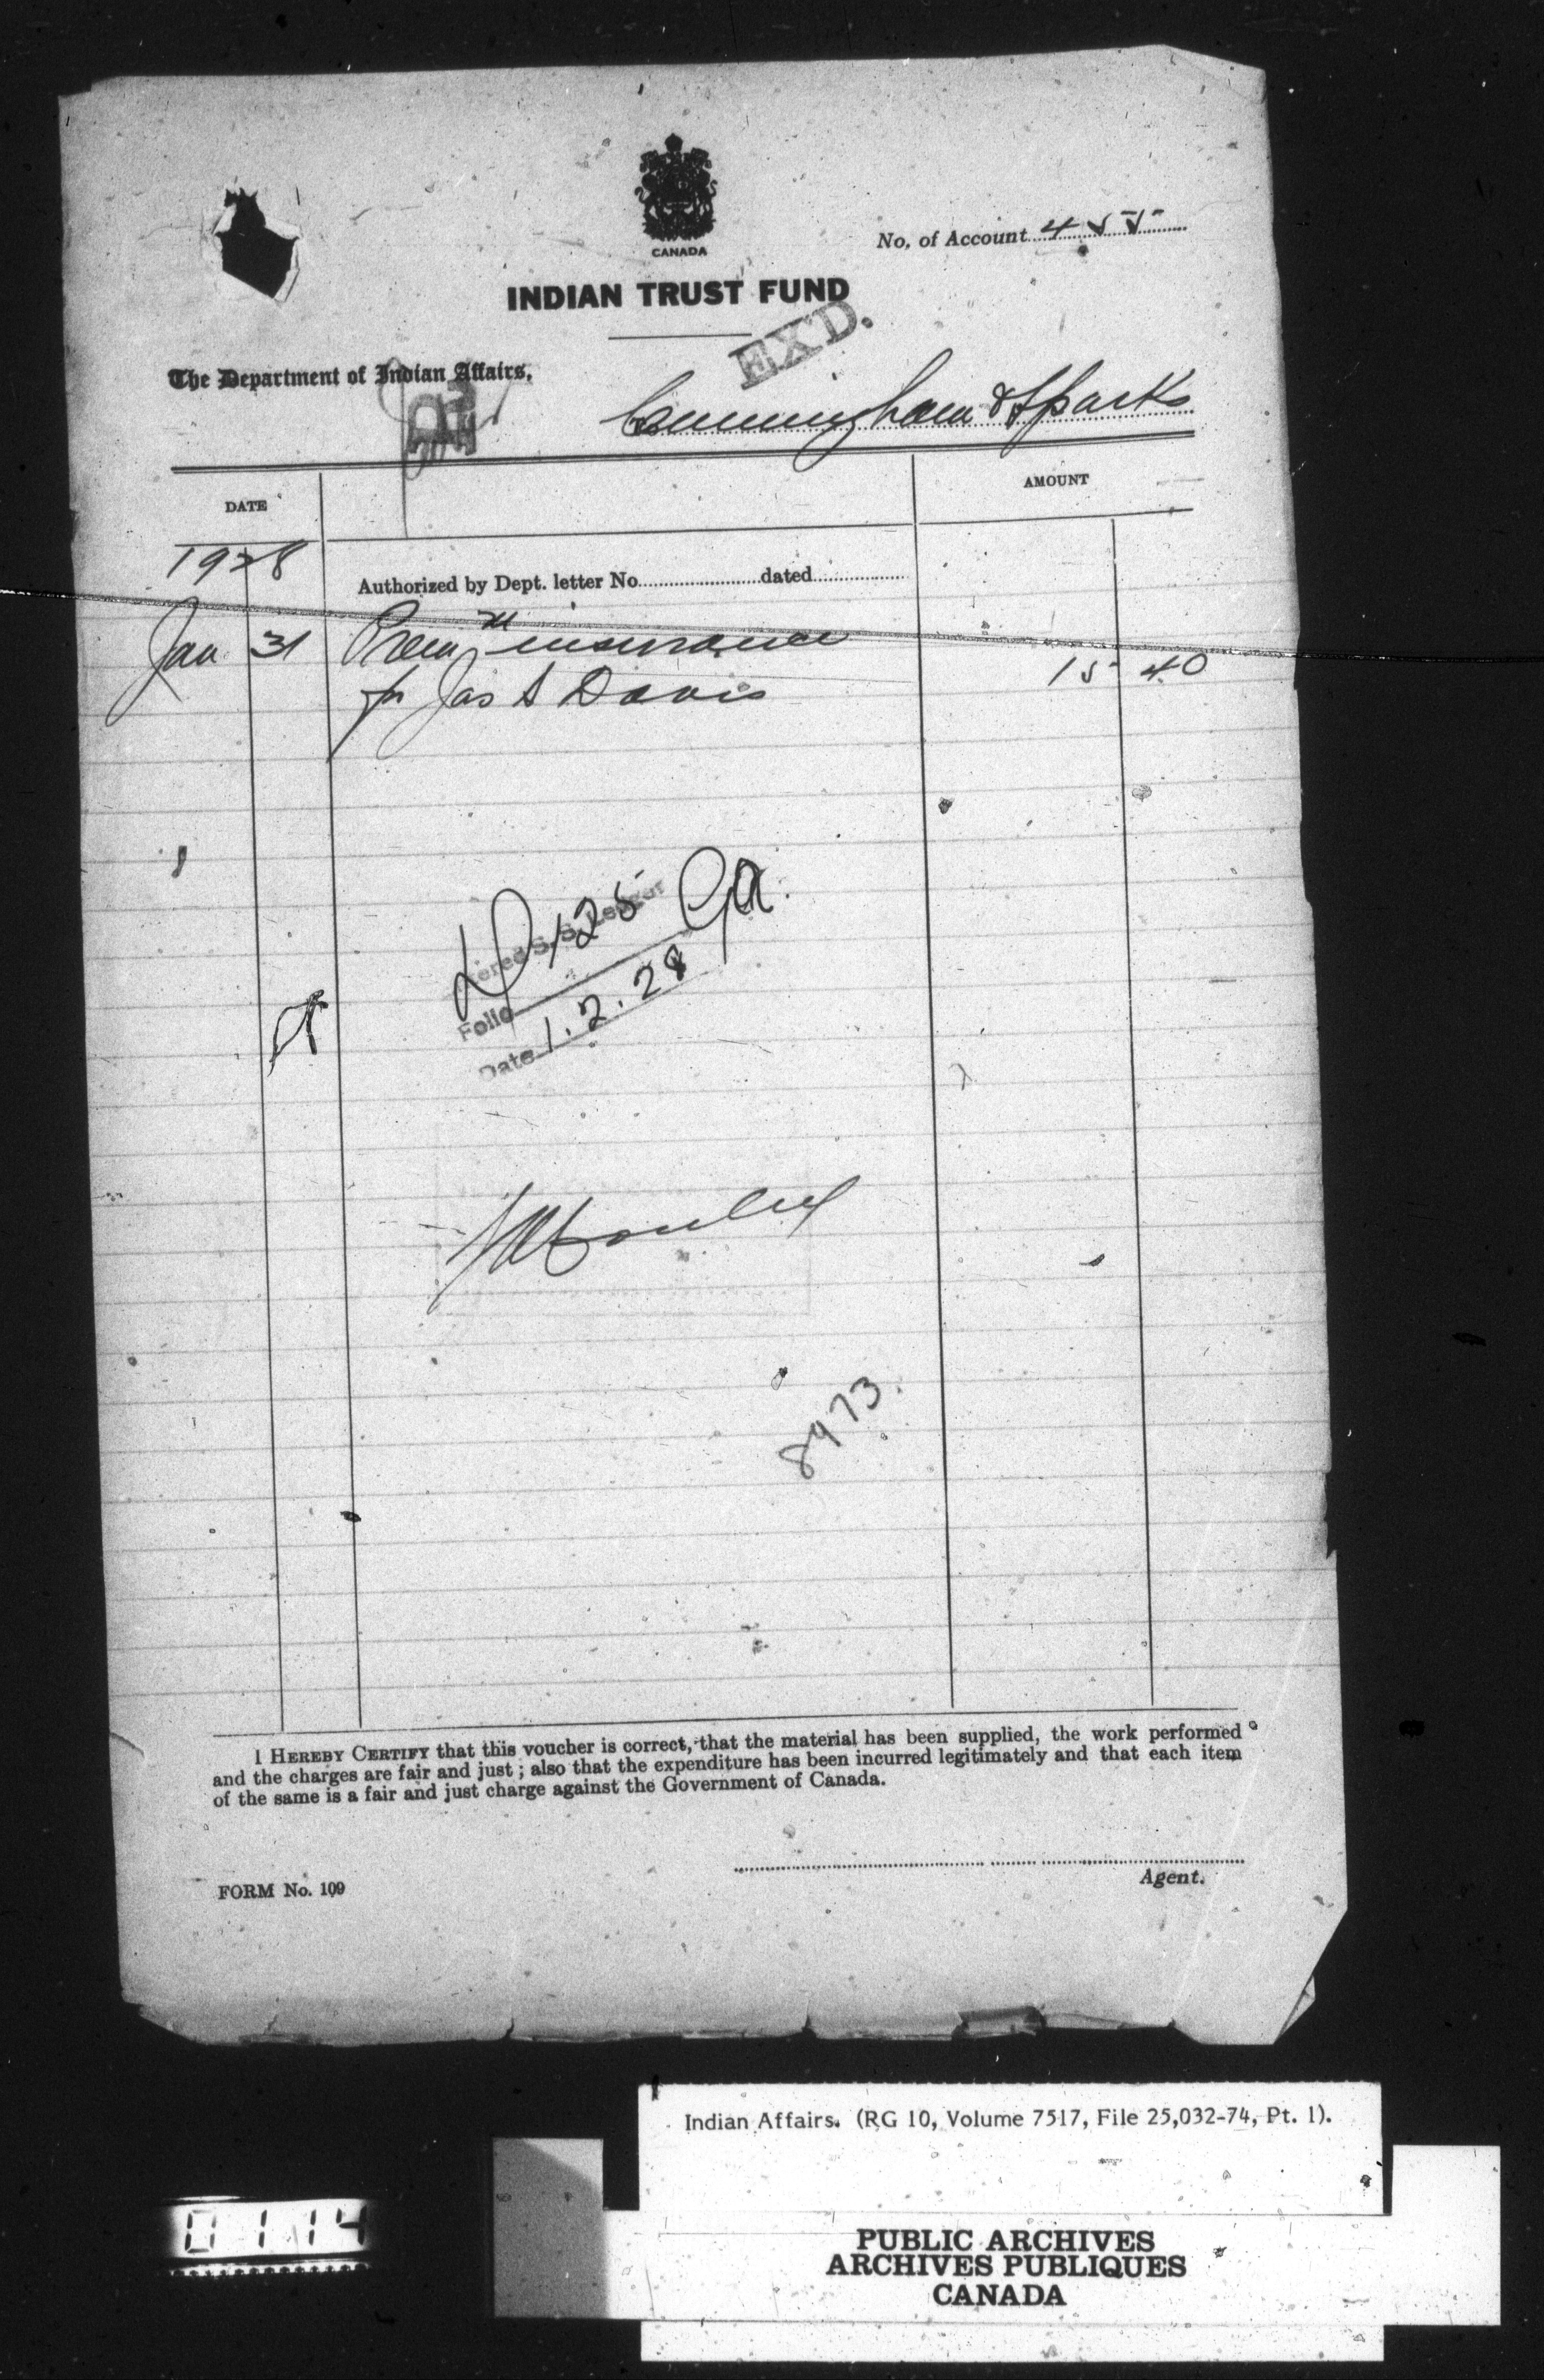 CANADA
No. of Account 455
INDIAN TRUST FUND
EXD.
The Department of Indian Affairs,
Cunningham & Sparks
DATE
AMOUNT
1928
Authorized by Dept. letter No. dated
Jan 31 Prem m insurance
fr Jas S Davis 15 40
D 125
ered S.S. Ledger
Folio
Date 1.2.28
8973.
I HEREBY CERTIFY that this voucher is correct, that the material has been supplied, the work performed
and the charges are fair and just; also that the expenditure has been incurred legitimately and that each item
of the same is a fair and just charge against the Government of Canada.
Agent.
FORM No. 109
Indian Affairs. (RG 10, Volume 7517, File 25,032-74, Pt. 1).
0114
PUBLIC ARCHIVES
ARCHIVES PUBLIQUES
CANADA